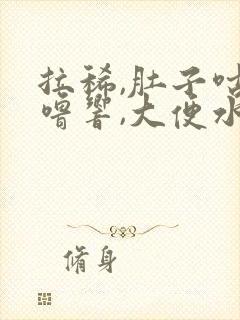 拉稀,肚子咕
噜响,大便水
脩身